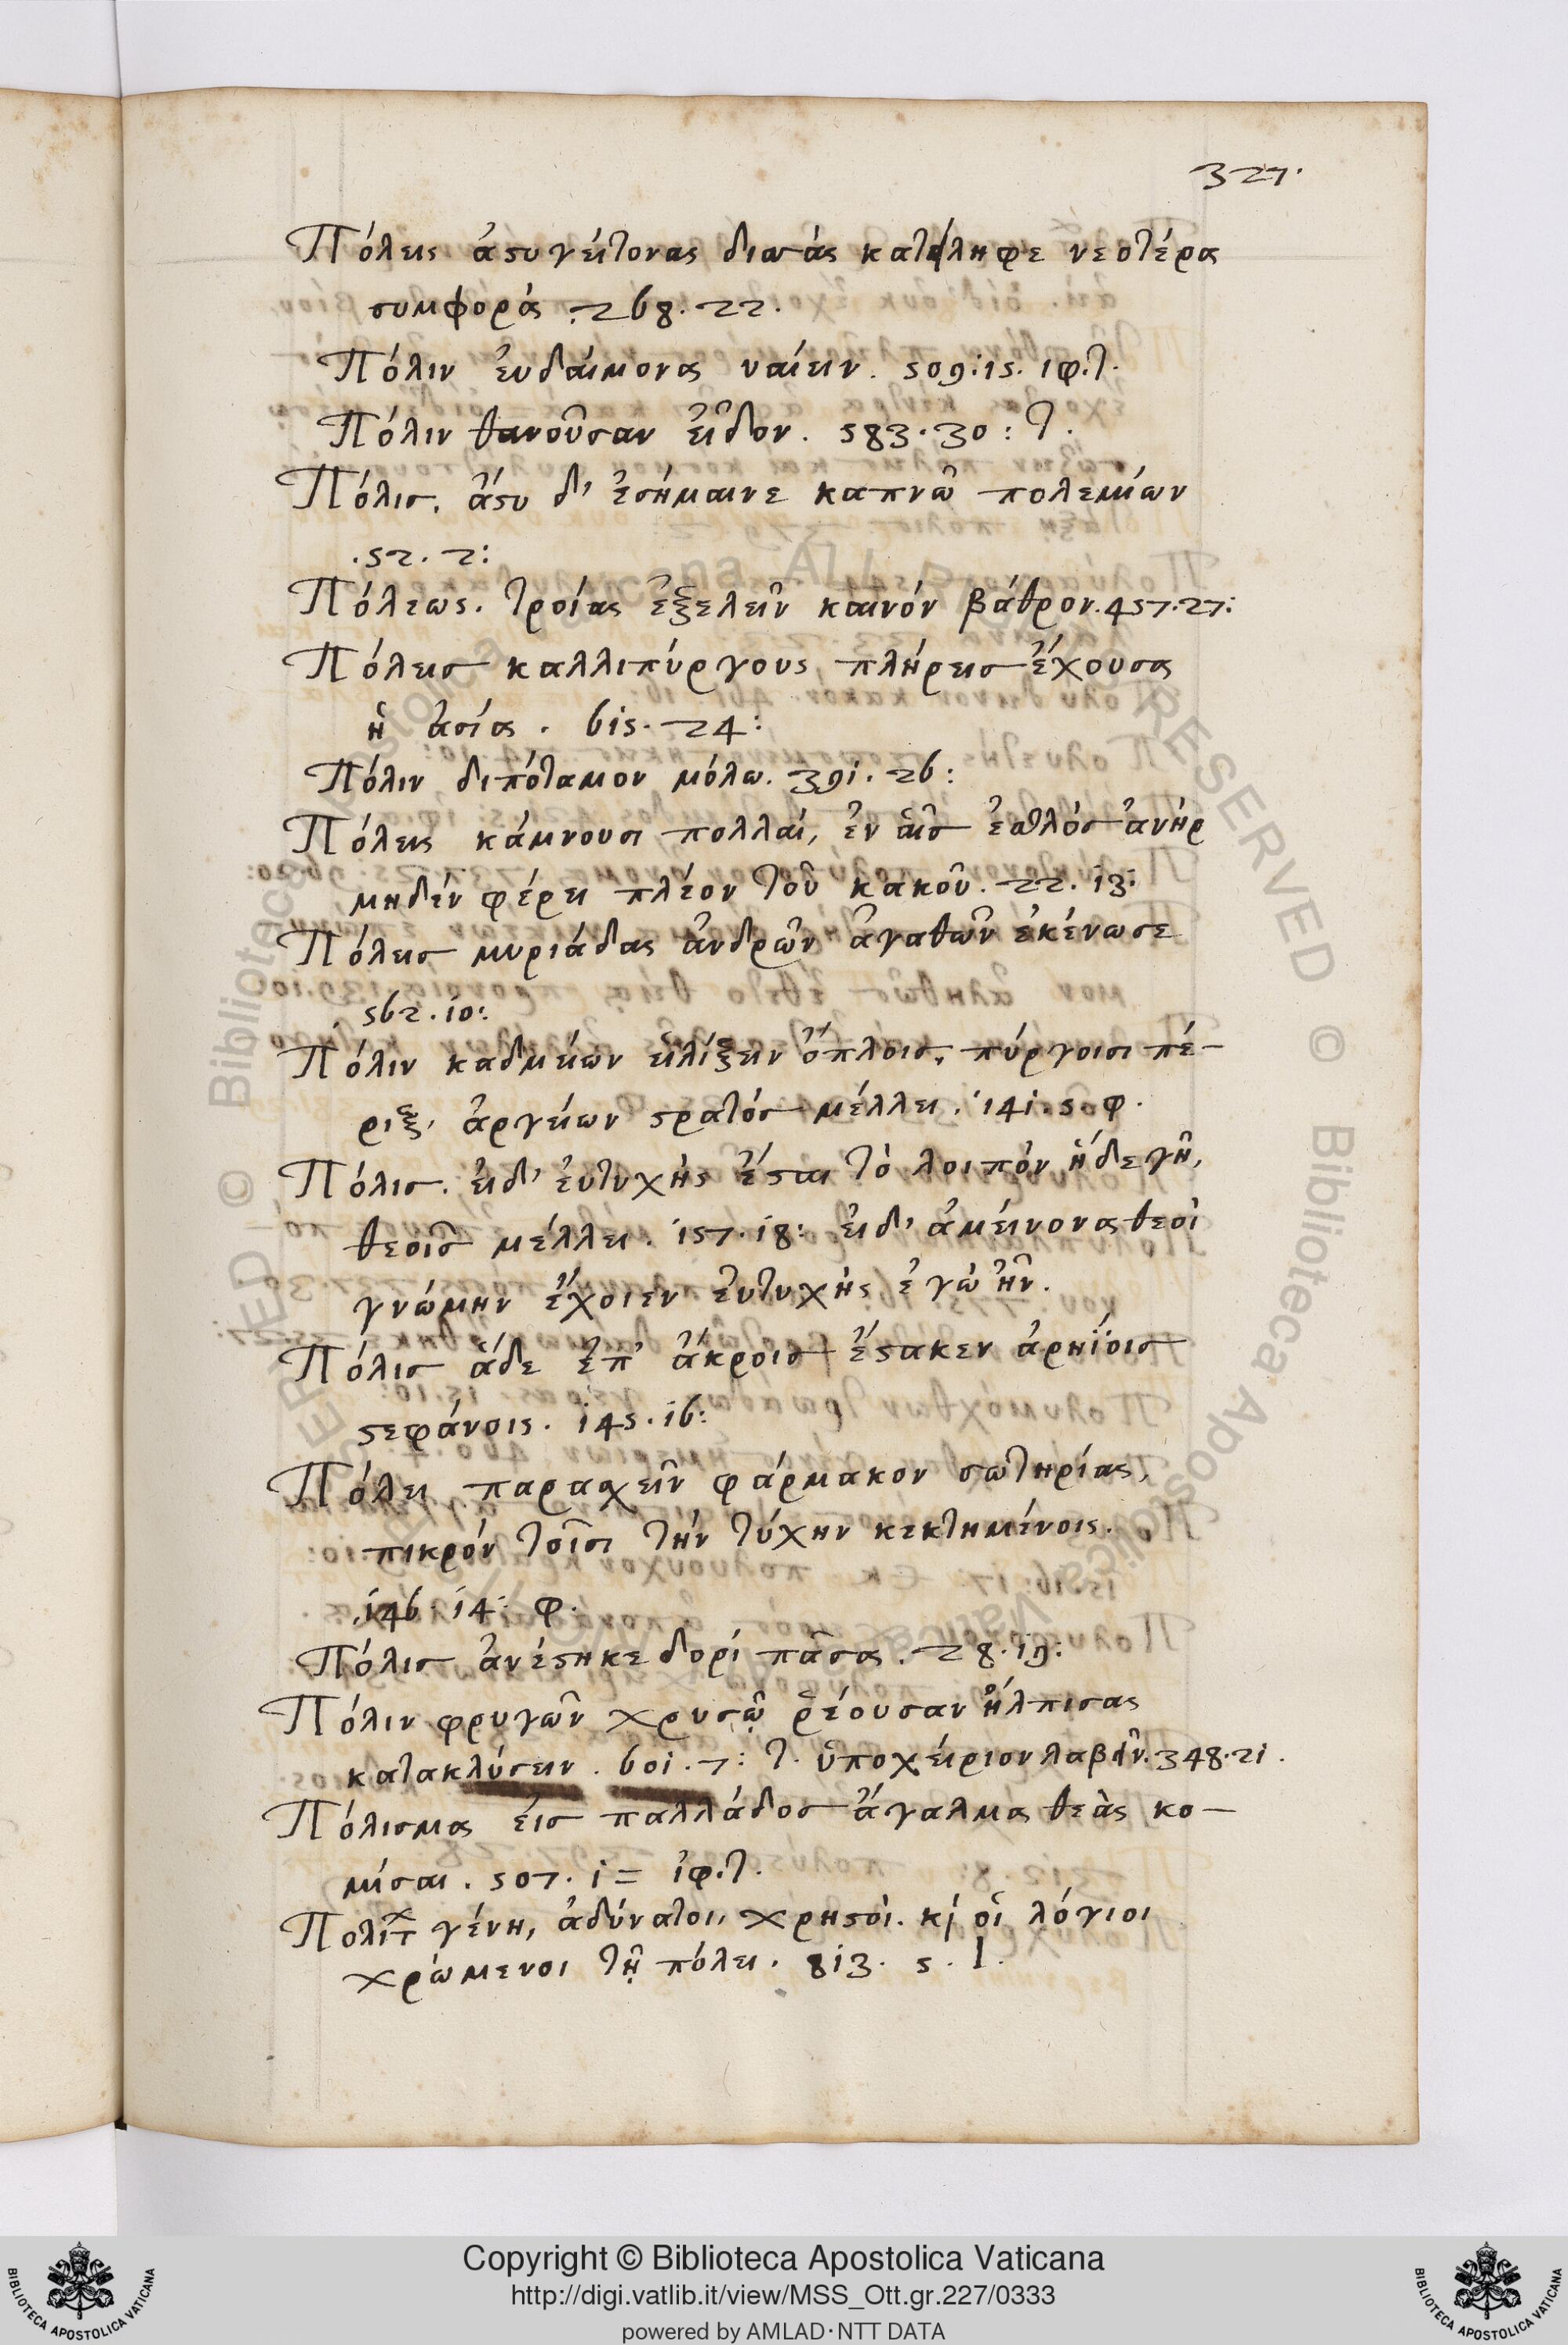 327.
Πόλεις ἀϛυγείτονας δινὰς κατείληφε νεοτέρα
συμφορά. 268. 22.
Πόλιν ἐυδαίμονα ναίειν. 509. 15. ιφ. τ.
Πόλιν θανοῦσαν εἶδον. 583. 30 : τ.
Πόλισ. ἄϛυ δ' ἐσήμαινε καπνῶ πολεμίων
. 52. 2:
Πόλεως. τροίας ἐξελεῖν καινόν βάθρον. 457. 27:
Πόλεισ καλλιπύργους πλήρεισ ἔχουσα
ἡ ἀσία. 615. 24:
Πόλιν διπόταμον μόλω. 391. 26:
Πόλεις κάμνουσι πολλαί, ἐν αἷσ ἐσθλόσ ἀνήρ
μηδέν φέρει πλέον τοῦ κακοῦ. 22. 13:
Πόλεισ μυριάδας ἀνδρῶν ἀγαθῶν ἐκένωσε
562. 10:
Πόλιν καδμείων εἱλίξειν ὅπλοισ, πύργοισι πέ-
ριξ, ἀργείων ϛρατόσ μέλλει. 141. 5. φ.
Πόλισ. ἐιδ' ἐυτυχὴς ἔϛαι τὸ λοιπόν ἥδε γῆ,
θεοῖσ μέλλει. 157. 18: ἐιδ' ἀμείνονα θεοὶ
γνώμην ἔχοιεν ἐυτυχὴς ἐγὼ ἦν.
Πόλισ ἅδε ἐπ' ἄκροισ ἔϛακεν ἀρηΐοισ
ϛεφάνοις. 145. 16:
Πόλει παρασχεῖν φάρμακον σωτηρίας,
πικρόν τοῖσι τήν τύχην κεκτημένοις.
146. 14: φ.
Πόλισ ἀνέϛηκε δορί πᾶσα. 28. 19:
Πόλιν φρυγῶν χρυσῷ ῥέουσαν ἤλπισας
κατακλύσειν. 601. 7: τ. ὑποχείριον λαβεῖν. 348. 21.
Πόλισμα εἰσ παλλάδοσ ἄγαλμα θεὰς κο-
μίσαι. 507. 1 = ἰφ. τ.
γένη, ἀδύνατοι, χρηϛοὶ. κ̀ οἱ λόγιοι
χρώμενοι τῇ πόλει. 813. 5. l.
Copyright © Biblioteca Apostolica Vaticana
http://digi.vatlib.it/view/MSS_Ott.gr.227/0333
powered by AMLAD·NTT DATA
BIBLIOTECA APOSTOLICA VATICANA
BIBLIOTECA APOSTOLICA VATICANA